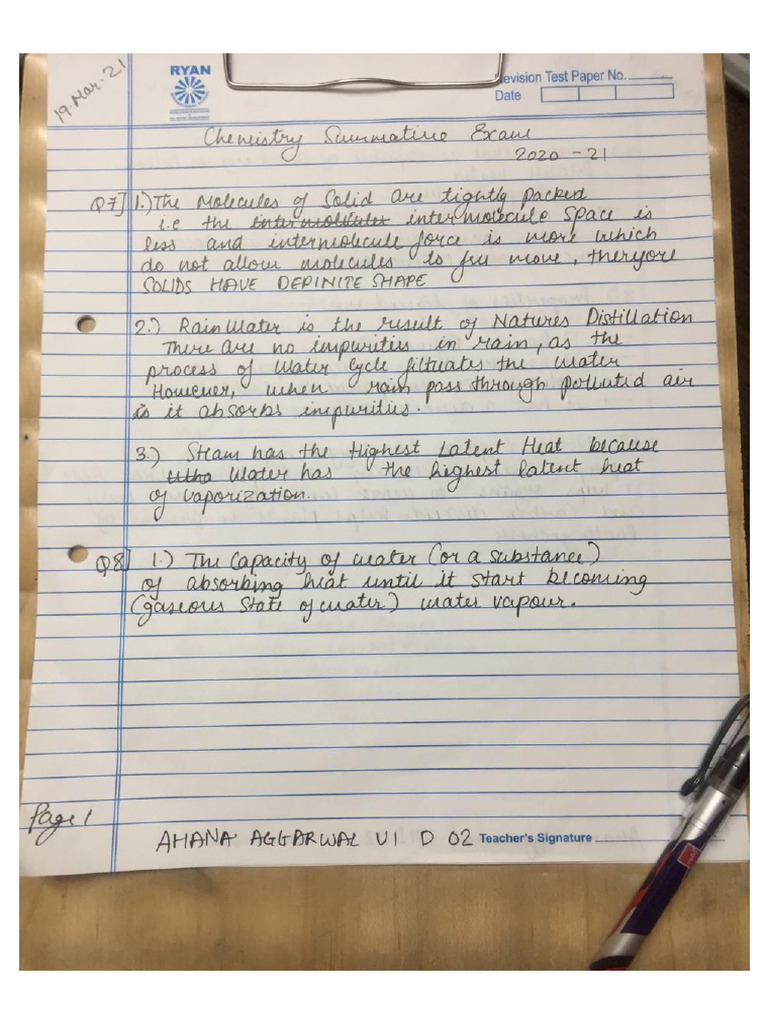 19. Mar. 21
RYAN
evision Test Paper No.
Date
Chemistry Summative Exam
2020 - 21
Q7] 1.) The Molecules of Solid are tightly packed
i.e the intermolecule space is
less and intermolecule force is more which
do not allow molecules to free move, therefore
SOLIDS HAVE DEPINITE SHAPE
2.) Rain Water is the result of Natures Distillation
There are no impurities in rain, as the
process of Water Cycle filtuates the water
However, when rain pass through polluted air
it absorbs impurities.
3.) Steam has the Highest Latent Heat because
Water has the highest latent heat
of vaporization.
Q8] 1.) The Capacity of water (or a substance)
of absorbing heat until it start becoming
(gaseous state of water) water vapour.
Page 1
AHANA AGGARWAL VI D 02 Teacher's Signature